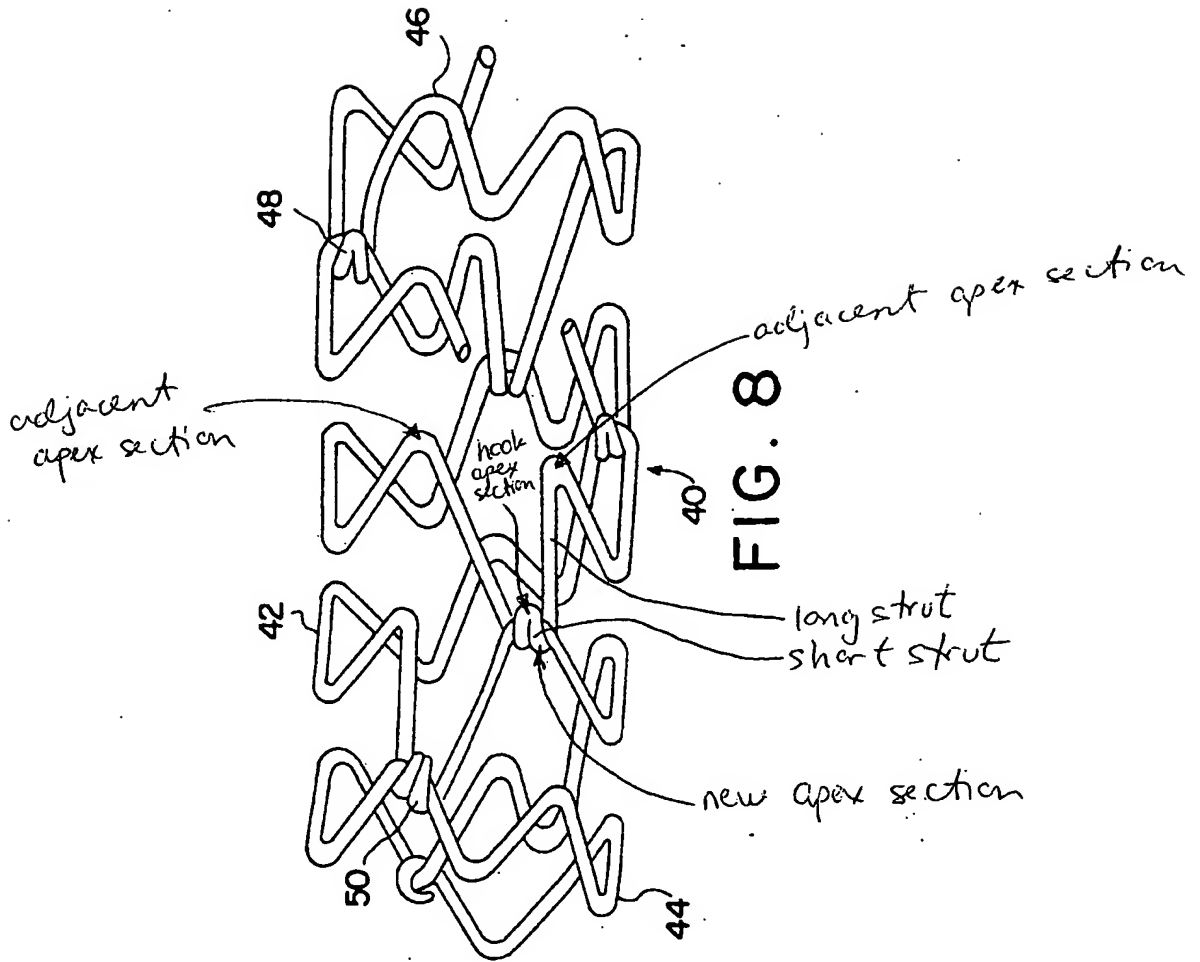 46
48
adjacent apex section
adjacent
apex section
hook
apex
section
FIG. 8
40
42
long strut
short strut
new apex section
50
44